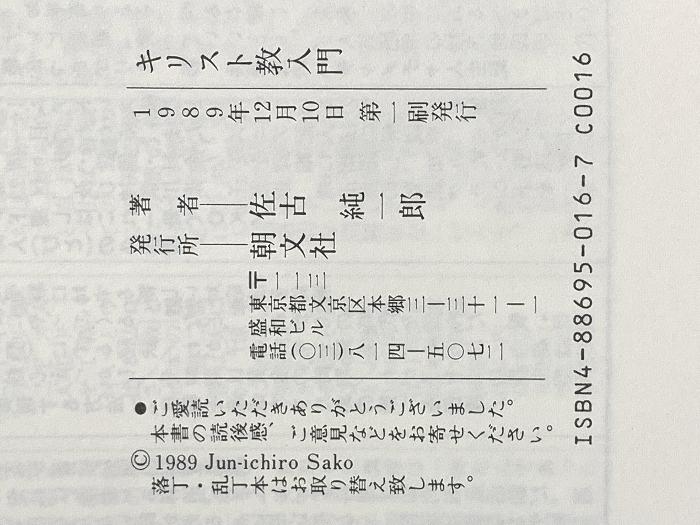 キリスト教入門
1989年12月10日 第一刷発行
著者──佐古純一郎
発行所──朝文社
〒一一三
東京都文京区本郷三—三十一—一
盛和ビル
電話(〇三)八一四—五〇七二
●ご愛読いただきありがとうございました。
本書の読後感、ご意見などをお寄せください。
©1989 Jun-ichiro Sako
落丁・乱丁本はお取り替え致します。
ISBN4-88695-016-7 C0016